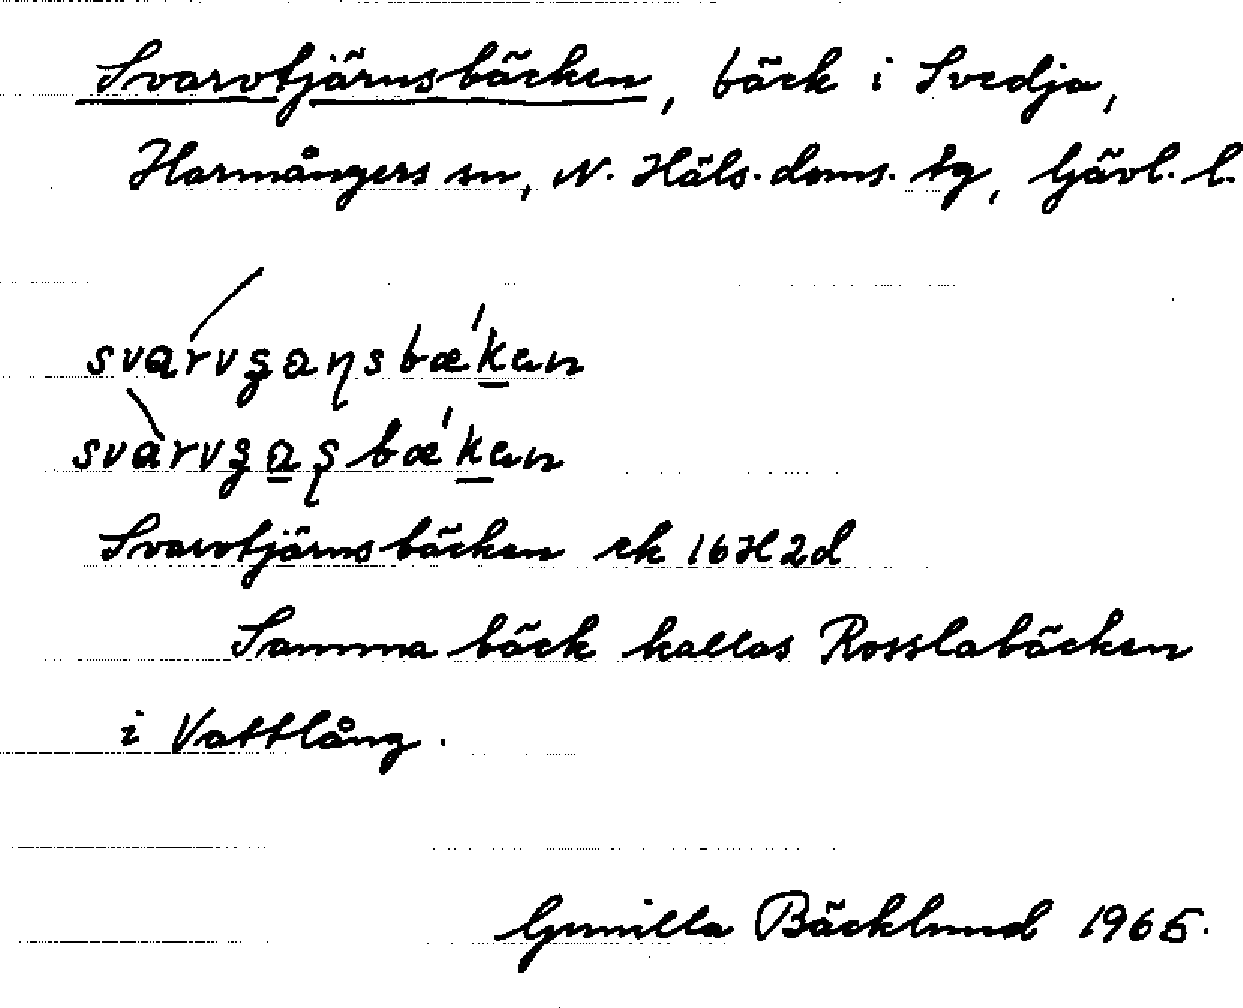 Svarvtjärnsbäcken, bäck i Svedja,
Harmångers sn, N. Häls. doms. tg, Gävl. l.
Svarvtjärnsbäcken ek 16H2d
Samma bäck kallas Rosslabäcken
i Vattlång.
Gunilla Bäcklund 1965.